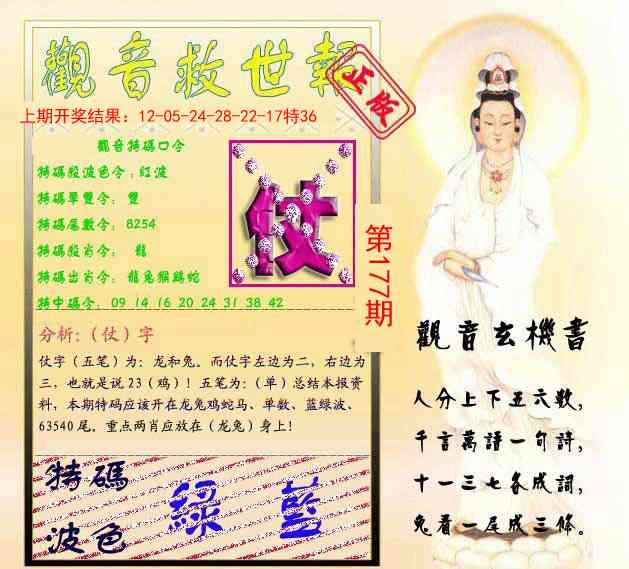 觀音救世報
正版
上期开奖结果：12-05-24-28-22-17特36
觀音特碼口令
特碼殺波色令：红波
特碼單雙令： 雙
特碼尾數令： 8254
特碼殺肖令： 龍
特碼出肖令： 龍兔猴鷄蛇
特中碼令： 09 14 16 20 24 31 38 42
仗
第177期
分析:（仗）字
仗字（五笔）为：龙和兔。而仗字左边为二，右边为
三，也就是说 23（鸡）！五笔为：（单）总结本报资
料，本期特码应该开在龙兔鸡蛇马、单数、蓝绿波、
63540 尾。重点两肖应放在（龙兔）身上！
特碼
波色
綠 藍
觀音玄機書
人分上下五六數，
千言萬語一句詩，
十一三七各成詞，
兔看一尾成三條。